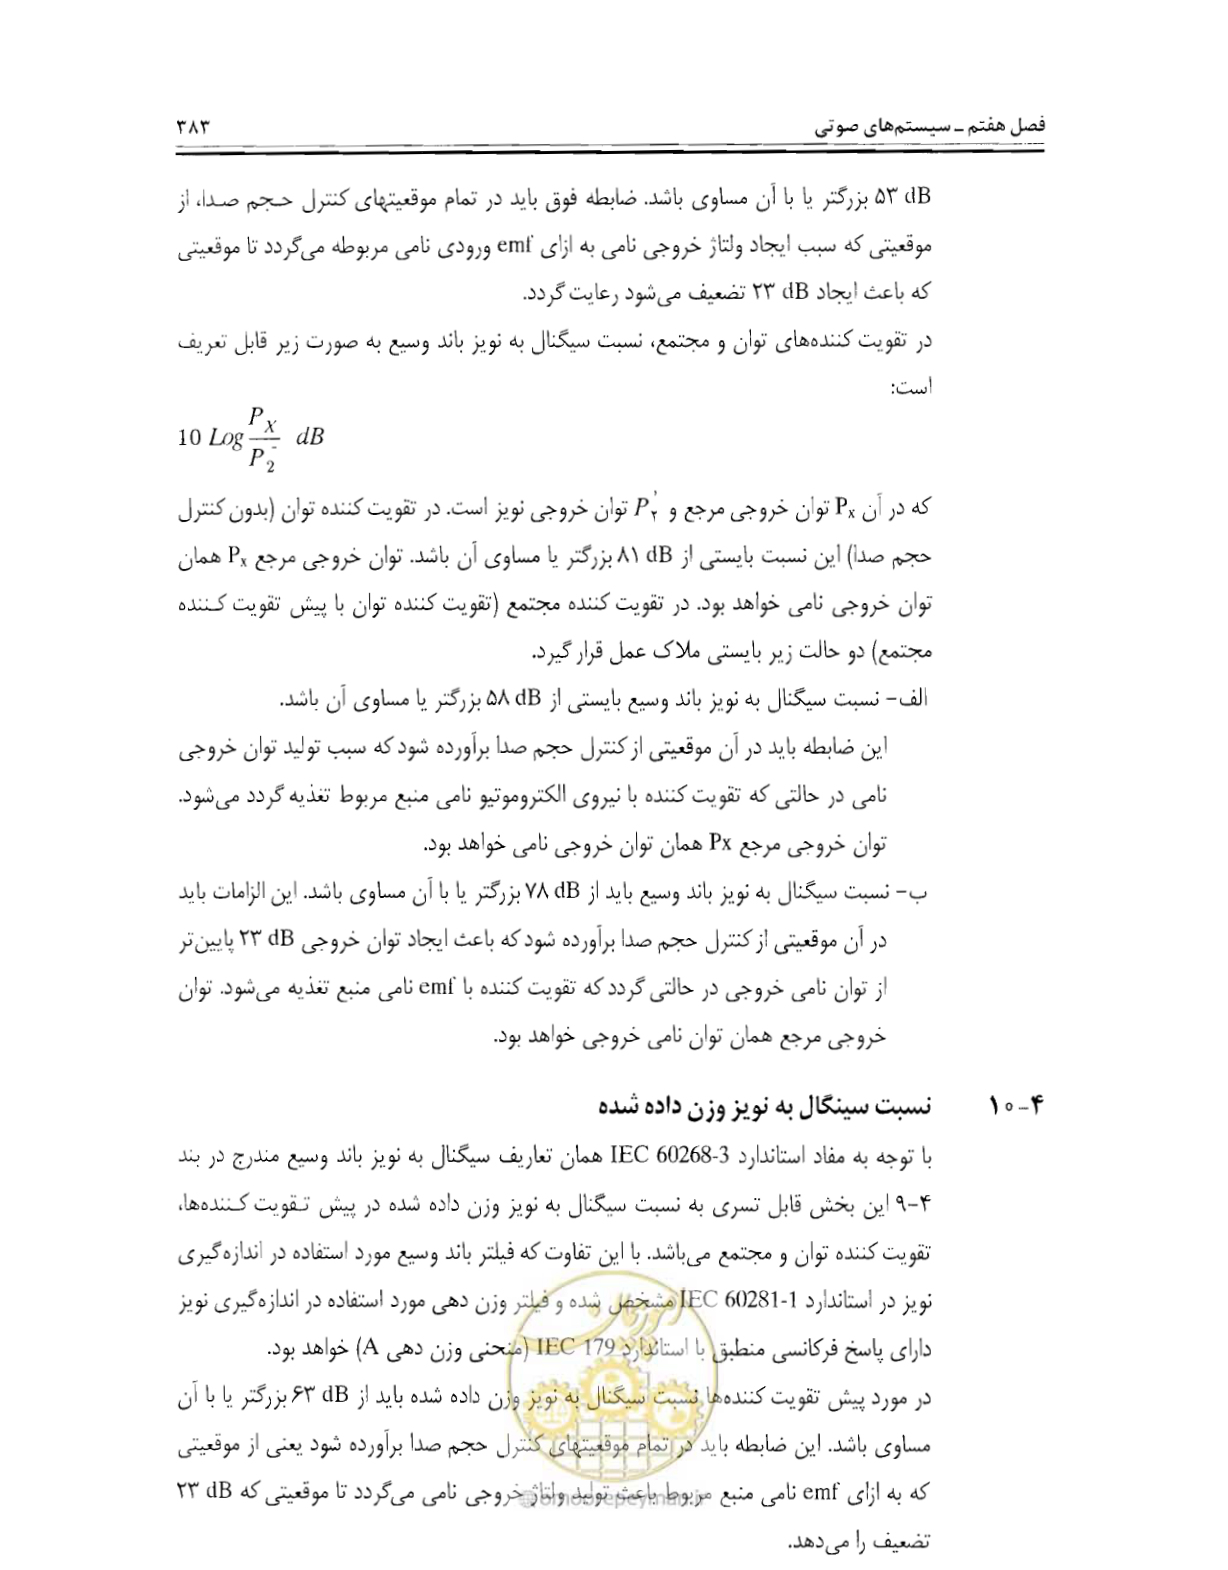 فصل هفتم ـ سیستم‌های صوتی ۳۸۳
۵۳ dB بزرگتر یا با آن مساوی باشد. ضابطه فوق باید در تمام موقعیتهای کنترل حجم صدا، از
موقعیتی که سبب ایجاد ولتاژ خروجی نامی به ازای emf ورودی نامی مربوطه می‌گردد تا موقعیتی
که باعث ایجاد ۲۳ dB تضعیف می‌شود رعایت گردد.
در تقویت کننده‌های توان و مجتمع، نسبت سیگنال به نویز باند وسیع به صورت زیر قابل تعریف
است:
10 Log P_X / P_2' dB
که در آن Px توان خروجی مرجع و P'۲ توان خروجی نویز است. در تقویت کننده توان (بدون کنترل
حجم صدا) این نسبت بایستی از ۸۱ dB بزرگتر یا مساوی آن باشد. توان خروجی مرجع Px همان
توان خروجی نامی خواهد بود. در تقویت کننده مجتمع (تقویت کننده توان با پیش تقویت کننده
مجتمع) دو حالت زیر بایستی ملاک عمل قرار گیرد.
الف- نسبت سیگنال به نویز باند وسیع بایستی از ۵۸ dB بزرگتر یا مساوی آن باشد.
این ضابطه باید در آن موقعیتی از کنترل حجم صدا برآورده شود که سبب تولید توان خروجی
نامی در حالتی که تقویت کننده با نیروی الکتروموتیو نامی منبع مربوط تغذیه گردد می‌شود.
توان خروجی مرجع Px همان توان خروجی نامی خواهد بود.
ب- نسبت سیگنال به نویز باند وسیع باید از ۷۸ dB بزرگتر یا با آن مساوی باشد. این الزامات باید
در آن موقعیتی از کنترل حجم صدا برآورده شود که باعث ایجاد توان خروجی ۲۳ dB پایین‌تر
از توان نامی خروجی در حالتی گردد که تقویت کننده با emf نامی منبع تغذیه می‌شود. توان
خروجی مرجع همان توان نامی خروجی خواهد بود.
۴-۱۰ نسبت سینگال به نویز وزن داده شده
با توجه به مفاد استاندارد IEC 60268-3 همان تعاریف سیگنال به نویز باند وسیع مندرج در بند
۴-۹ این بخش قابل تسری به نسبت سیگنال به نویز وزن داده شده در پیش تقویت کننده‌ها،
تقویت کننده توان و مجتمع می‌باشد. با این تفاوت که فیلتر باند وسیع مورد استفاده در اندازه‌گیری
نویز در استاندارد IEC 60281-1 مشخص شده و فیلتر وزن دهی مورد استفاده در اندازه‌گیری نویز
دارای پاسخ فرکانسی منطبق با استاندارد IEC 179 (منحنی وزن دهی A) خواهد بود.
در مورد پیش تقویت کننده‌ها نسبت سیگنال به نویز وزن داده شده باید از ۶۳ dB بزرگتر یا با آن
مساوی باشد. این ضابطه باید در تمام موقعیتهای کنترل حجم صدا برآورده شود یعنی از موقعیتی
که به ازای emf نامی منبع مربوط باعث تولید ولتاژ خروجی نامی می‌گردد تا موقعیتی که ۲۳ dB
تضعیف را می‌دهد.